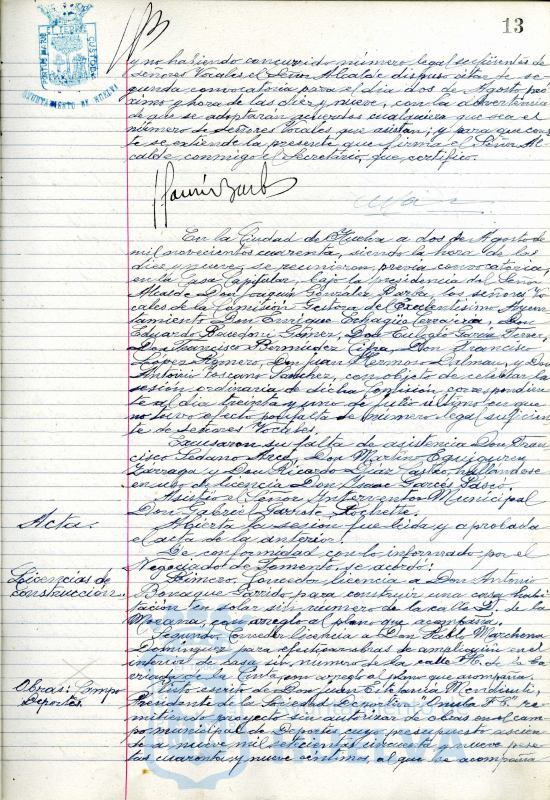 13
AYUNTAMIENTO DE HUELVA
y no habiendo concurrido número legal suficiente de
señores Vocales el Señor Alcalde dispuso citar de se-
gunda convocatoria para el día dos de Agosto pró-
ximo a hora de las diez y nueve, con la advertencia
de que se adoptarán acuerdos cualquiera que sea el
número de señores Vocales que asistan; y para que cons-
te se extiende la presente que firma el Señor Al-
calde conmigo el Secretario, que certifico.
En la Ciudad de Huelva a dos de Agosto de
mil novecientos cuarenta, siendo la hora de las
diez y nueve, se reunieron, previa convocatoria,
en la Casa Capitular, bajo la presidencia del Señor
Alcalde Don Joaquín González Barba, los señores Vo-
cales de la Comisión Gestora del Excelentísimo Ayun-
tamiento Don Enrique Echagüe Don
Eduardo Gómez, Don Eulogio García Ferrer,
Don Francisco Bermúdez Don Francisco
López Romero, Don Juan y Don
Antonio Sánchez, con objeto de celebrar la
sesión ordinaria de dicha Comisión correspondien-
te al día treinta y uno de Julio último en que
no tuvo efecto por falta de número legal suficien-
te de señores Vocales.
Excusaron su falta de asistencia Don Fran-
cisco Sedano Arce, Don Martín Eguiguren
y Don Ricardo Díaz hallándose
en uso de licencia Don Isaac Garcés
Asistió el Señor Interventor Municipal
Don Gabriel Garrote
Acta.
Abierta la sesión fue leída y aprobada
el acta de la anterior.
De conformidad con lo informado por el
Negociado de Fomento, se acordó:
Licencias de
construcción.
Primero. Conceder licencia a Don Antonio
Garrido para construir una casa habi-
tación en solar sin número de la calle D. de la
con arreglo al plano que acompaña.
Segundo. Conceder licencia a Don Pablo Marchena
Domínguez para efectuar obras de ampliación en el
interior de casa sin número de la calle H. de la Ba-
rriada de la Cinta, con arreglo al plano que acompaña.
Obras: Campo
Deportes.
Visto escrito de Don Juan Estefanía Mendicuti,
Presidente de la Sociedad Deportiva "Onuba F.C." re-
mitiendo proyecto sin autorizar de obras en el cam-
po municipal de Deportes cuyo presupuesto ascien-
de a nueve mil setecientas cincuenta y nueve pese-
tas cuarenta y nueve céntimos, al que se acompaña
Ayuntamiento de
HUELVA